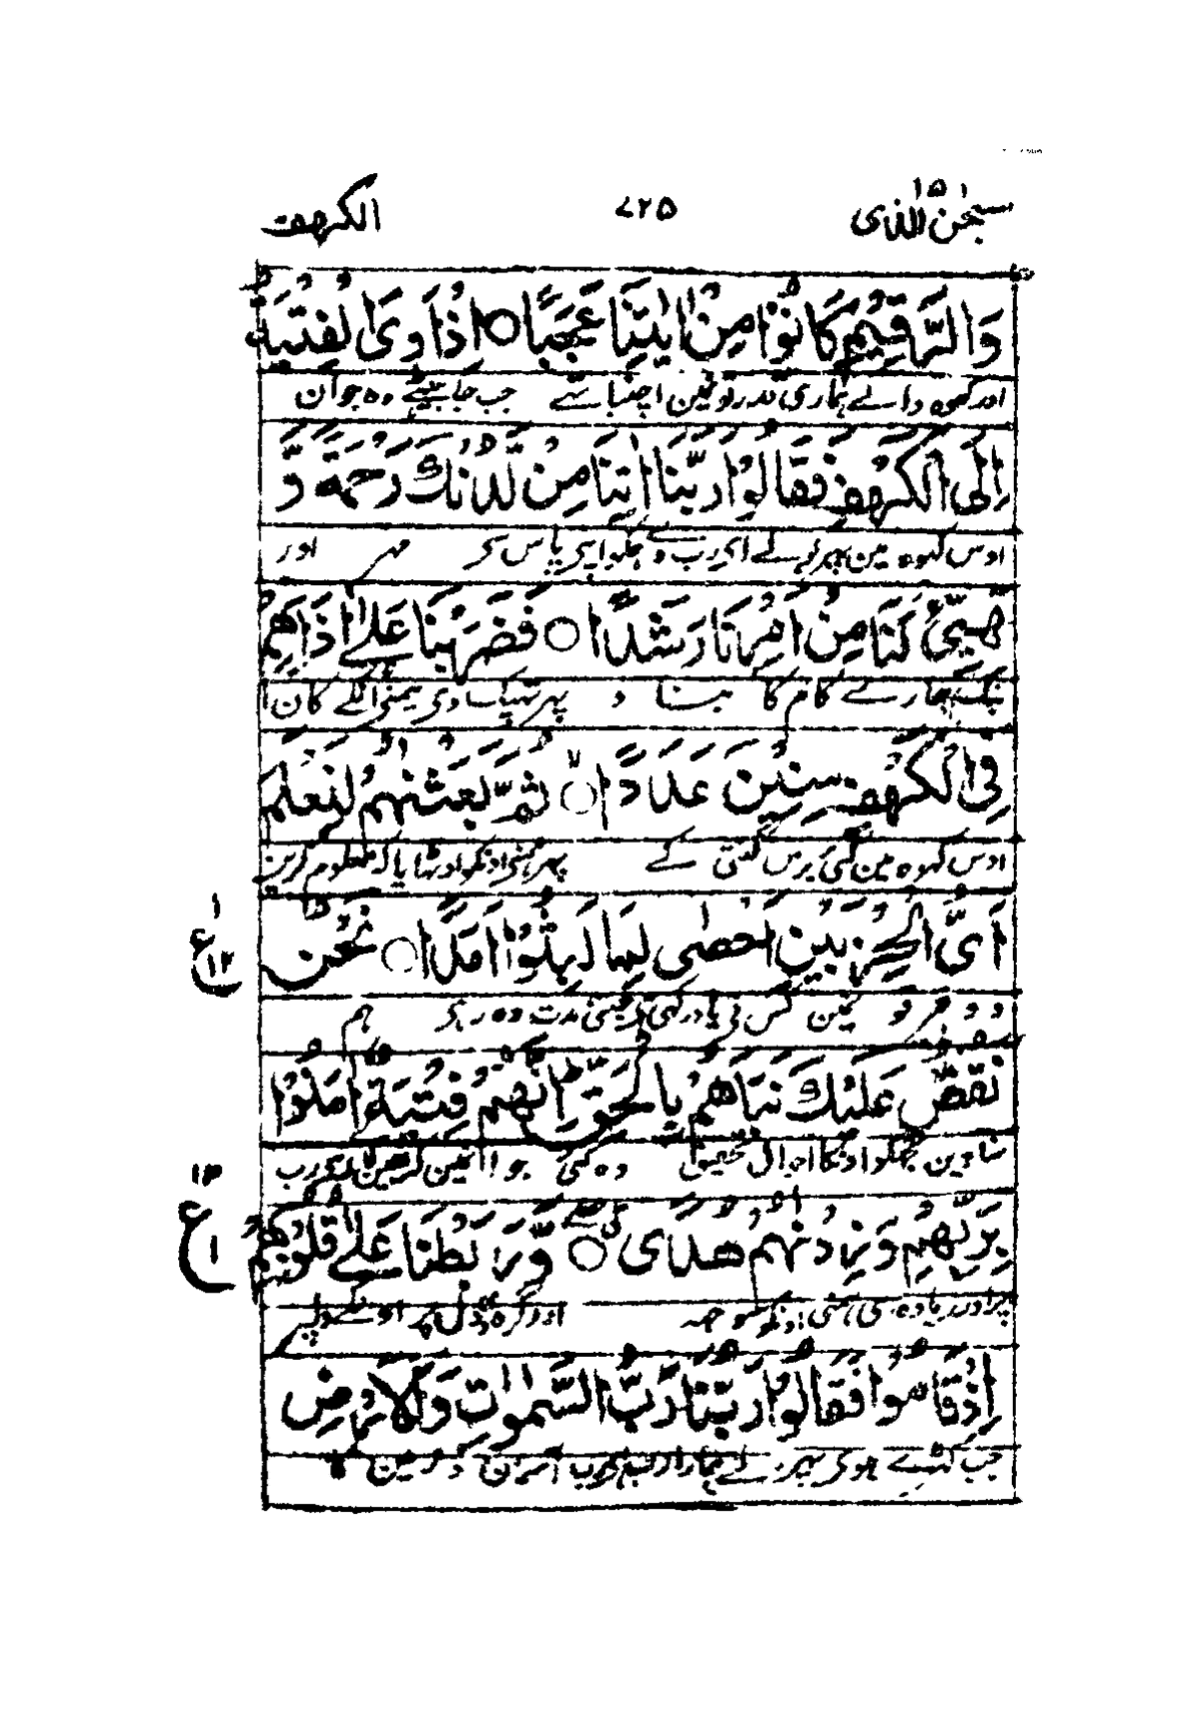 سبحٰن الذی ١٥
٤٢٥
الكهف
وَالرَّقِيْمِ كَانُوْا مِنْ اٰيٰتِنَا عَجَبًا ○ اِذْ اَوَى الْفِتْيَةُ
اور کھوہ والے ہماری قدرتونمین اچنبا تھے جب جا بیٹھے وہ جوان
اِلَى الْكَهْفِ فَقَالُوْا رَبَّنَا اٰتِنَا مِنْ لَّدُنْكَ رَحْمَةً وَّ
اوس کھوہ مین پھر بولے ای رب دے ہمکو اپنی پاس سی مہر اور
هَيِّئْ لَنَا مِنْ اَمْرِنَا رَشَدًا ○ فَضَرَبْنَا عَلٰٓى اٰذَانِهِمْ
ہمارے کام کا بناو پھر تھپک دی ہمنی اونکے کان
فِى الْكَهْفِ سِنِيْنَ عَدَدًا ○ ثُمَّ بَعَثْنٰهُمْ لِنَعْلَمَ
اوس کھوہ مین کئی برس گنتی کے پھر ہمنی اونکو اوٹھایا کہ معلوم کرین
اَىُّ الْحِزْبَيْنِ اَحْصٰى لِمَا لَبِثُوْا اَمَدًا ○ نَحْنُ
١ ع ١٣
دو فرقو نمین کس نی یاد رکھی ہی جتنی مدت وہ رہی ہم
نَقُصُّ عَلَيْكَ نَبَاَهُمْ بِالْحَقِّ اِنَّهُمْ فِتْيَةٌ اٰمَنُوْا
سنادین تجھکو اونکا احوال تحقیق وہ کئی جوان ہین کہ یقین لائی رب
بِرَبِّهِمْ وَزِدْنٰهُمْ هُدًى ○ وَّرَبَطْنَا عَلٰى قُلُوْبِهِمْ
١٣ ع ١
پر اور زیادہ دی ہمنی اونکو سوجھ اور گرہ دی اونکے دلپر
اِذْ قَامُوْا فَقَالُوْا رَبُّنَا رَبُّ السَّمٰوٰتِ وَالْاَرْضِ
جب کھڑے ہوی پھر بولے ہمارا رب ہی رب آسمان و زمین کا